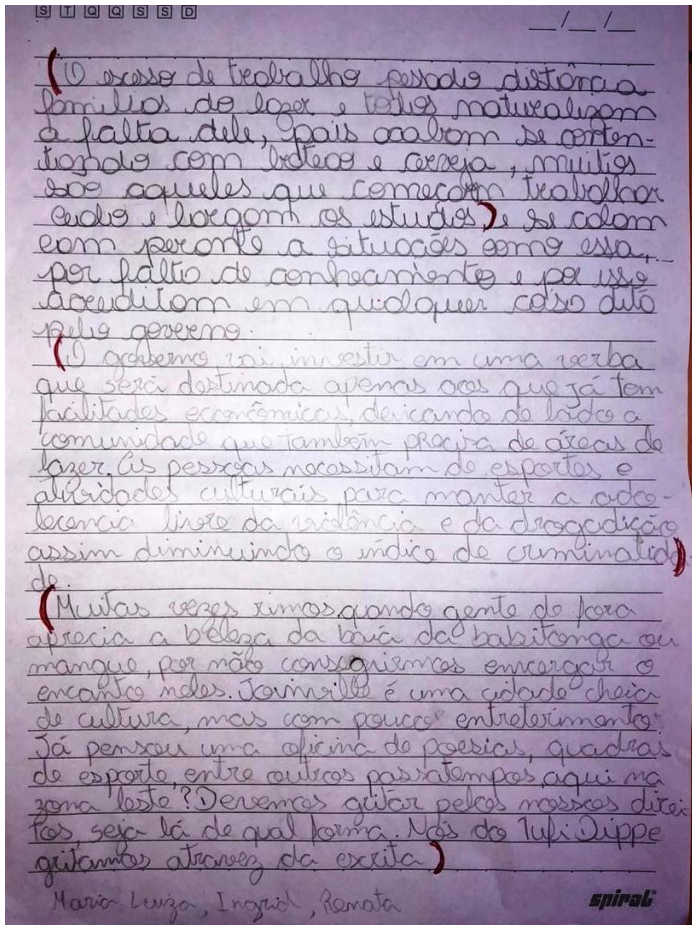 S T Q Q S S D
__/__/__
(O excesso de trabalho pesado distância
famílias do lazer e todos naturalizam
a falta dele, pois acabam se conten-
tando com boteco e cerveja, muitos
são aqueles que começam trabalhar
cedo e largam os estudos) e se calam
com perante a situações como essa,
por falta de conhecimento e por isso
acreditam em qualquer coisa dita
pelo governo.
(O governo vai investir em uma verba
que será destinada apenas aos que já tem
facilitades econômicas, deixando de lado a
comunidade que também precisa de áreas de
lazer. As pessoas necessitam de esportes e
atividades culturais para manter a ado-
lecencia livre da violência e da drogadição
assim diminuindo o índice de criminalida)
de.
(Muitas vezes rimos quando gente de fora
aprecia a beleza da baía da babitonga ou
mangue, por não conseguirmos enxergar o
encanto neles. Joinville é uma cidade cheia
de cultura, mas com pouco entreterimento.
Já pensou uma oficina de poesias, quadras
de esporte, entre outros passatempos, aqui na
zona leste? Devemos gritar pelos nossos direi-
tos, seja lá de qual forma. Nós do Tufi Dippe
gritamos atravez da escrita)
Maria Luiza, Ingrid, Renata
spiral